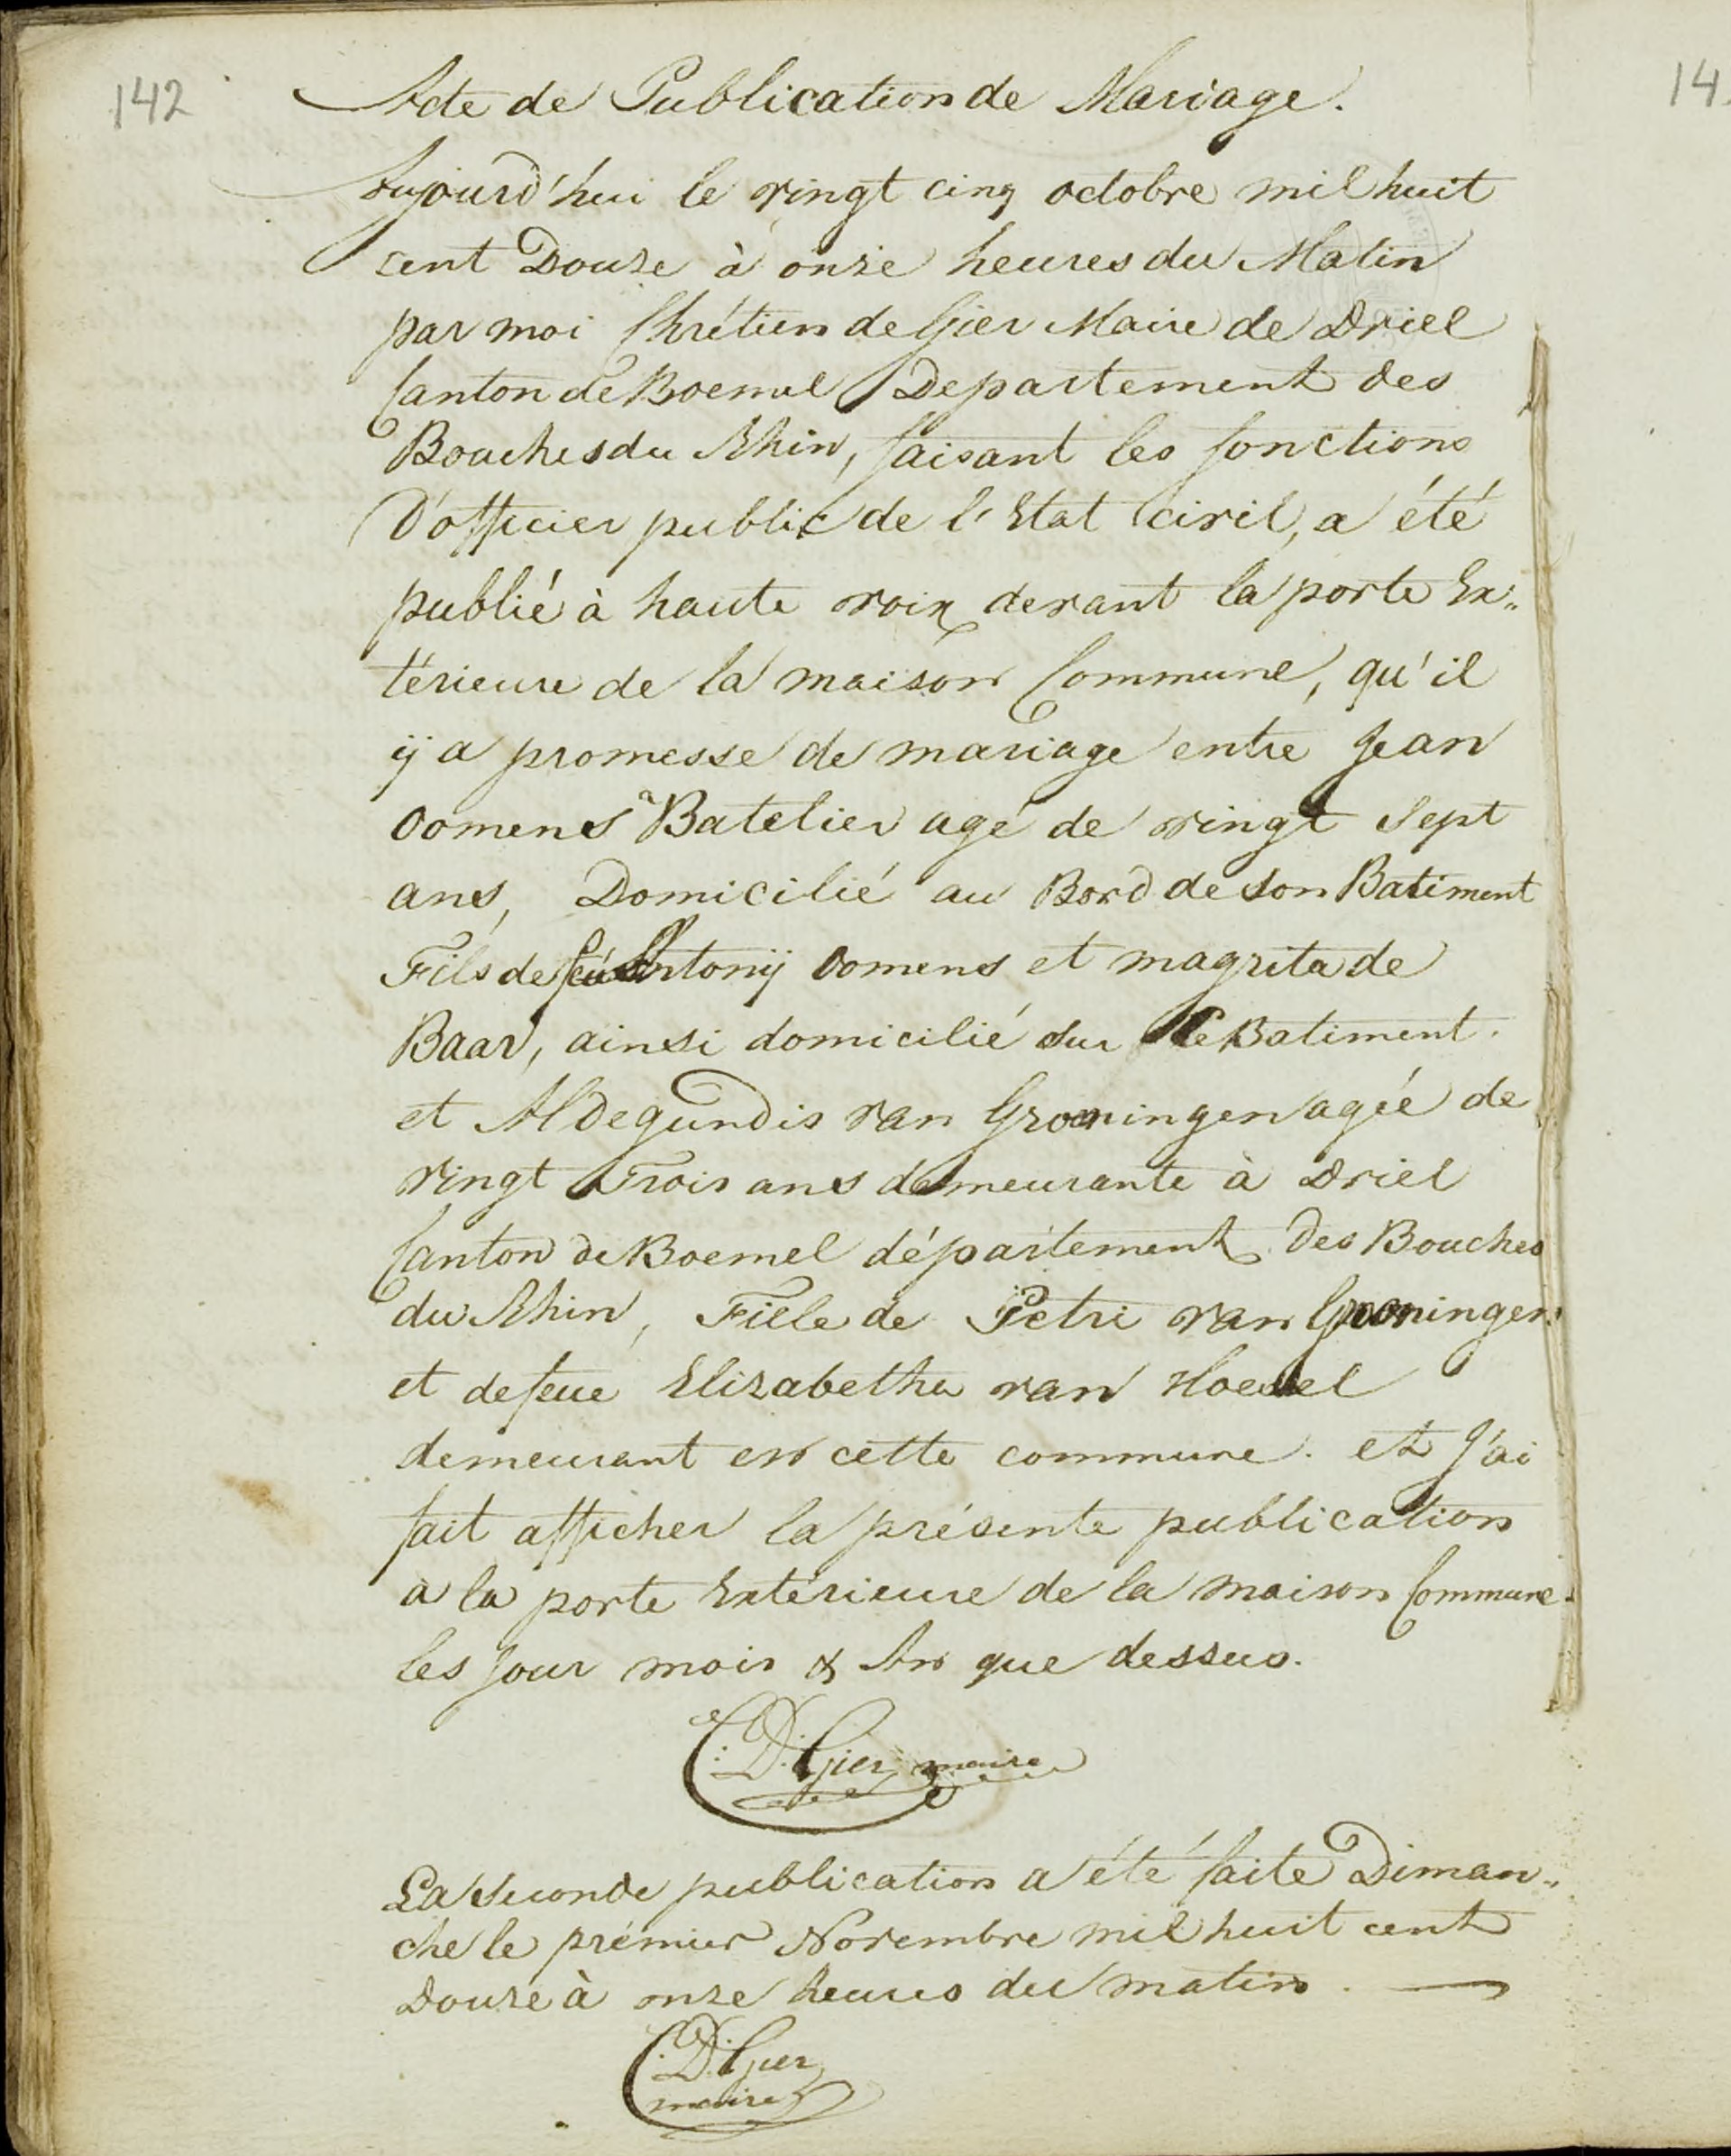 142
14
Acte de Publication de Mariage.
Aujourd'hui le vingt cinq octobre mil huit
cent Douze à onze heures du Matin
par moi Chrétien de Gier Maire de Driel
Canton de Boemel Departement des
Bouches du Rhin, faisant les fonctions
D'officier public de l'Etat civil, a été
publié à haute voix devant la porte Ex„
térieure de la maison Commune, qu'il
ij a promesse de mariage entre Jean
Oomens Batelier agé de vingt Sept
ans, Domicilié au Bord de son Batiment
Fils de feu Antonij Oomens et magrita de
Baar, ainsi domicilié sur le Batiment.
et Aldegundis van Groeningen agée de
vingt Trois ans demeurante à Driel
Canton de Boemel département des Bouches
du Rhin, Fille de Petri van Groeningen
et de feue Elizabetha van
demeurant en cette commune. et J'ai
fait afficher la présente publication
a la porte Extérieure de la maison Commune.
les Jour mois & An que dessus.
C: D: Gier maire
La Seconde publication a été faite Diman„
che le prémier Novembre mil huit cent
Douze à onze heures du matin.
C: D: Gier
maire